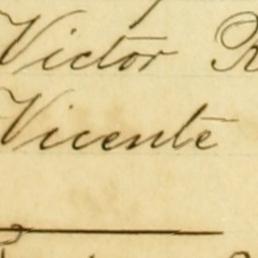 Victor R
Vicente